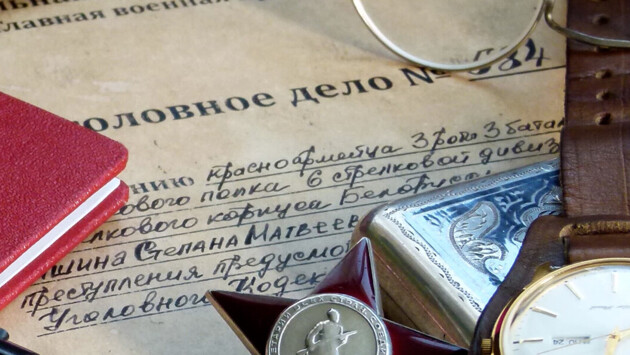 льна
главная военная п
головное дело № 684
ению красноармейца 3 роты 3 батал
кового полка 6 стрелковой дивиз
елкового корпуса Белорусс
шина Степана Матвеев
преступления предусмо
Уголовного Кодек
ЕТАРИИ ВСЕХ СТРАН СОЕДИ